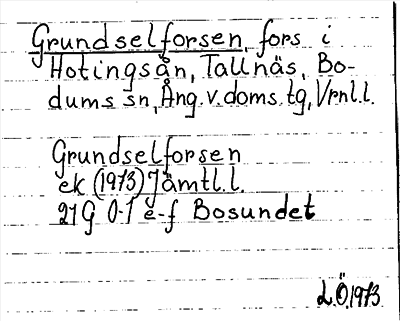 Grundselforsen, fors i
Hotingsån, Tallnäs, Bo-
dums sn, Ång. v. doms. tg, Vrnl.l.
Grundselforsen
ek (1973) Jämtl.l.
21G 0-1 e-f Bosundet
L.Ö.1973